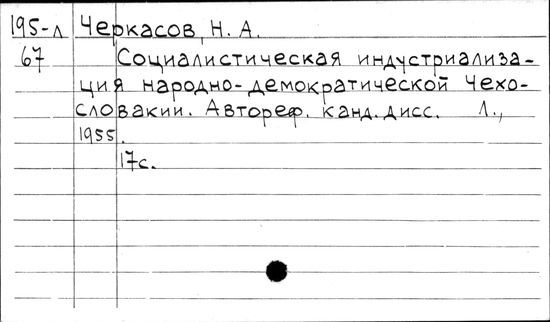 195-л Черкасов, Н. А.
67 Социалистическая индустриализа-
ция народно-демократической Чехо-
словакии. Автореф. канд. дисс. Л.,
1955.
17с.